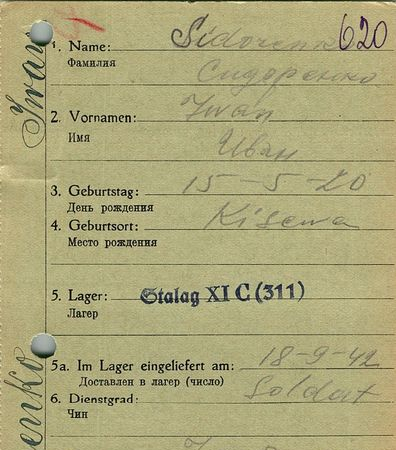 620
1. Name: Sidorenko
Фамилия
Сидоренко
2. Vornamen: Iwan
Имя
Иван
3. Geburtstag: 15-5-20
День рождения
4. Geburtsort:
Место рождения
5. Lager: Stalag XI C (311)
Лагер
5a. Im Lager eingeliefert am: 18-9-42
Доставлен в лагер (число)
6. Dienstgrad: Soldat
Чин
Iwan
enko